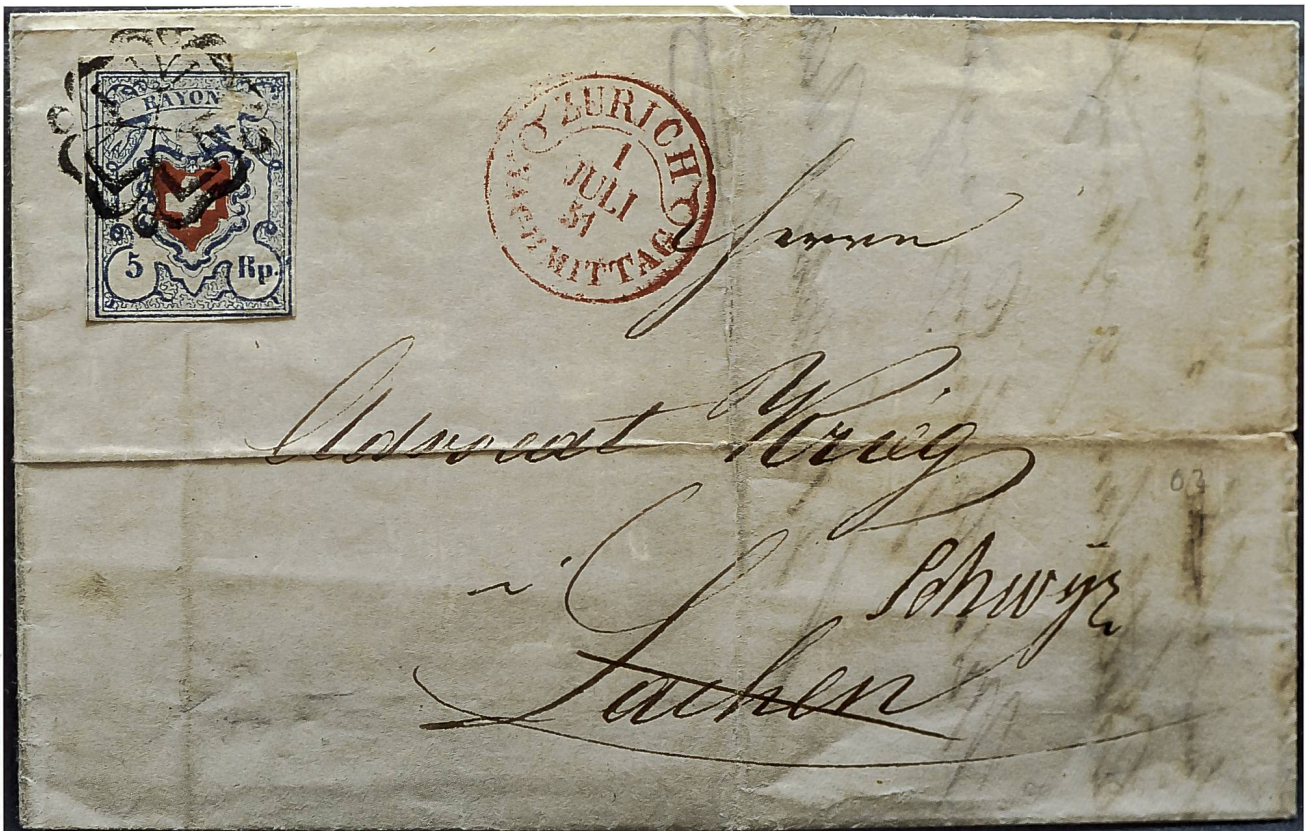 RAYON
5 Rp.
ZURICH
1
JULI
51
MITTAG
Herrn
Advocat Krieg
i
Schwÿz
Lachen